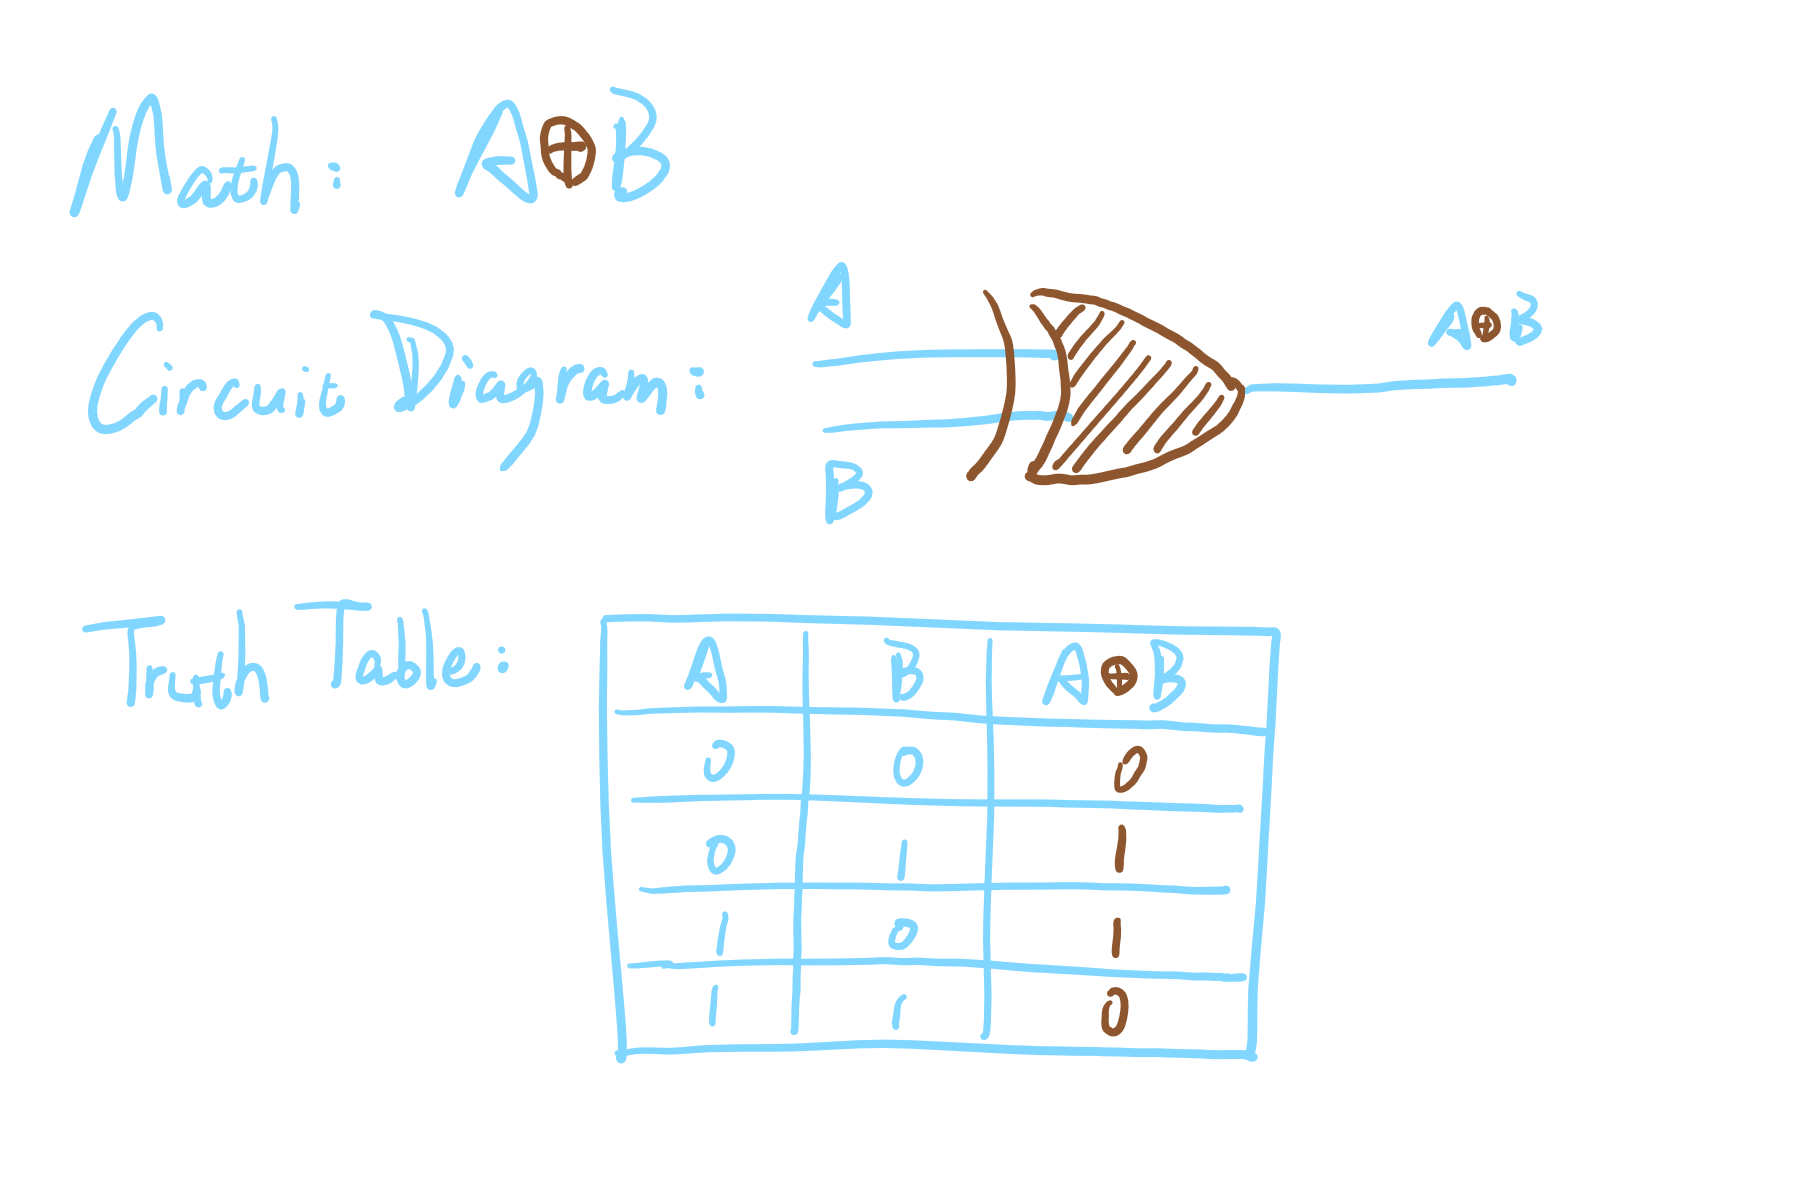 Math: A⊕B
A
Circuit Diagram: A⊕B
B
Truth Table:
A B A⊕B
0 0 0
0 1 1
1 0 1
1 1 0